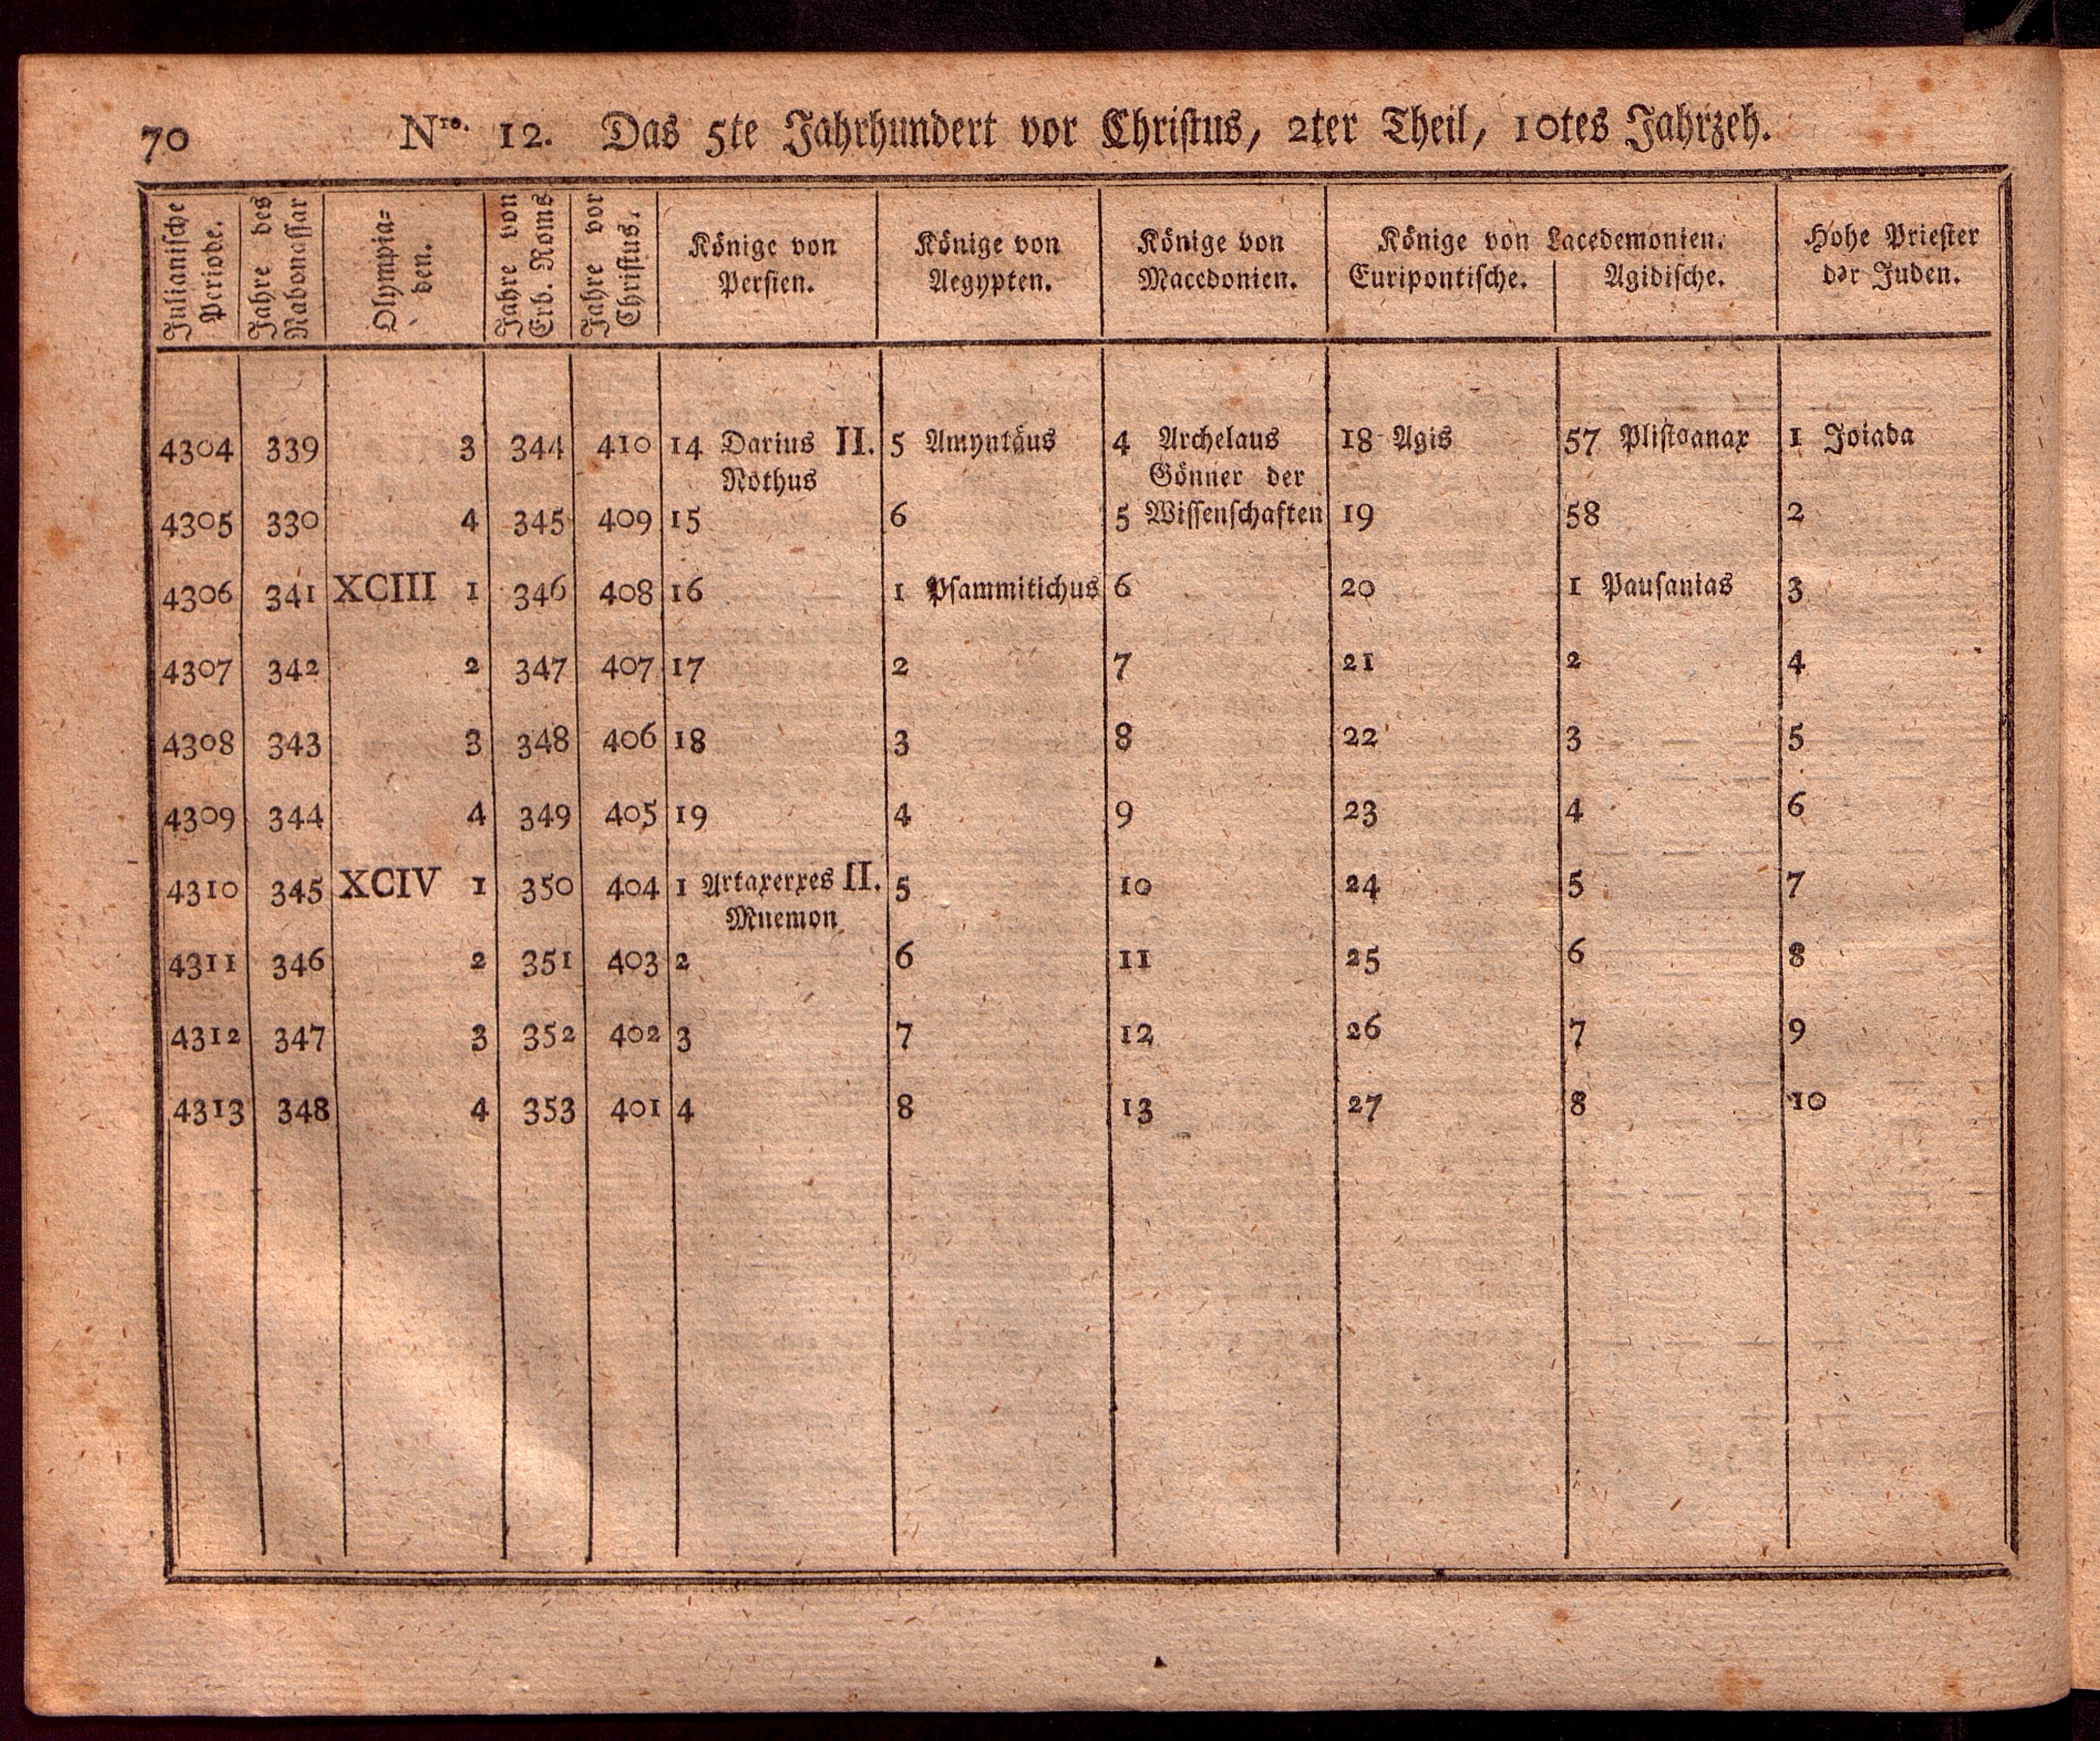 70 Nro. 12. Das 5te Jahrhundert vor Christus, 2ter Theil, 10tes Jahrzeh.
Julianische Periode.
Jahre des Nabonassar
Olympia=
den.
Jahre von Erb. Roms
Jahre vor Christus.
Könige von
Persien.
Könige von
Aegypten.
Könige von
Macedonien.
Könige von Lacedemonien.
Euripontische. Agidische.
Hohe Priester
der Juden.
4304 339 3 344 410 14 Darius II. 5 Amyntäus 4 Archelaus 18 Agis 57 Plistoanax 1 Joiada
Nothus Gönner der
4305 330 4 345 409 15 6 5 Wissenschaften 19 58 2
4306 341 XCIII 1 346 408 16 1 Psammitichus 6 20 1 Pausanias 3
4307 342 2 347 407 17 2 7 21 2 4
4308 343 3 348 406 18 3 8 22 3 5
4309 344 4 349 405 19 4 9 23 4 6
4310 345 XCIV 1 350 404 1 Artaxerxes II. 5 10 24 5 7
Mnemon
4311 346 2 351 403 2 6 11 25 6 8
4312 347 3 352 402 3 7 12 26 7 9
4313 348 4 353 401 4 8 13 27 8 10